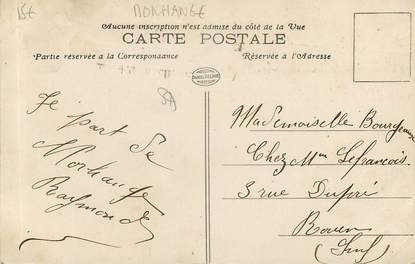 15€
MORHANGE
Aucune inscription n'est admise du côté de la Vue
CARTE POSTALE
Partie réservée à la Correspondance
Réservée à l'Adresse
Je part de
Morhange
Raymonde
Mademoiselle Bourgeaux
Chez Mme Lefrancois
3 rue Dupré
Rouen